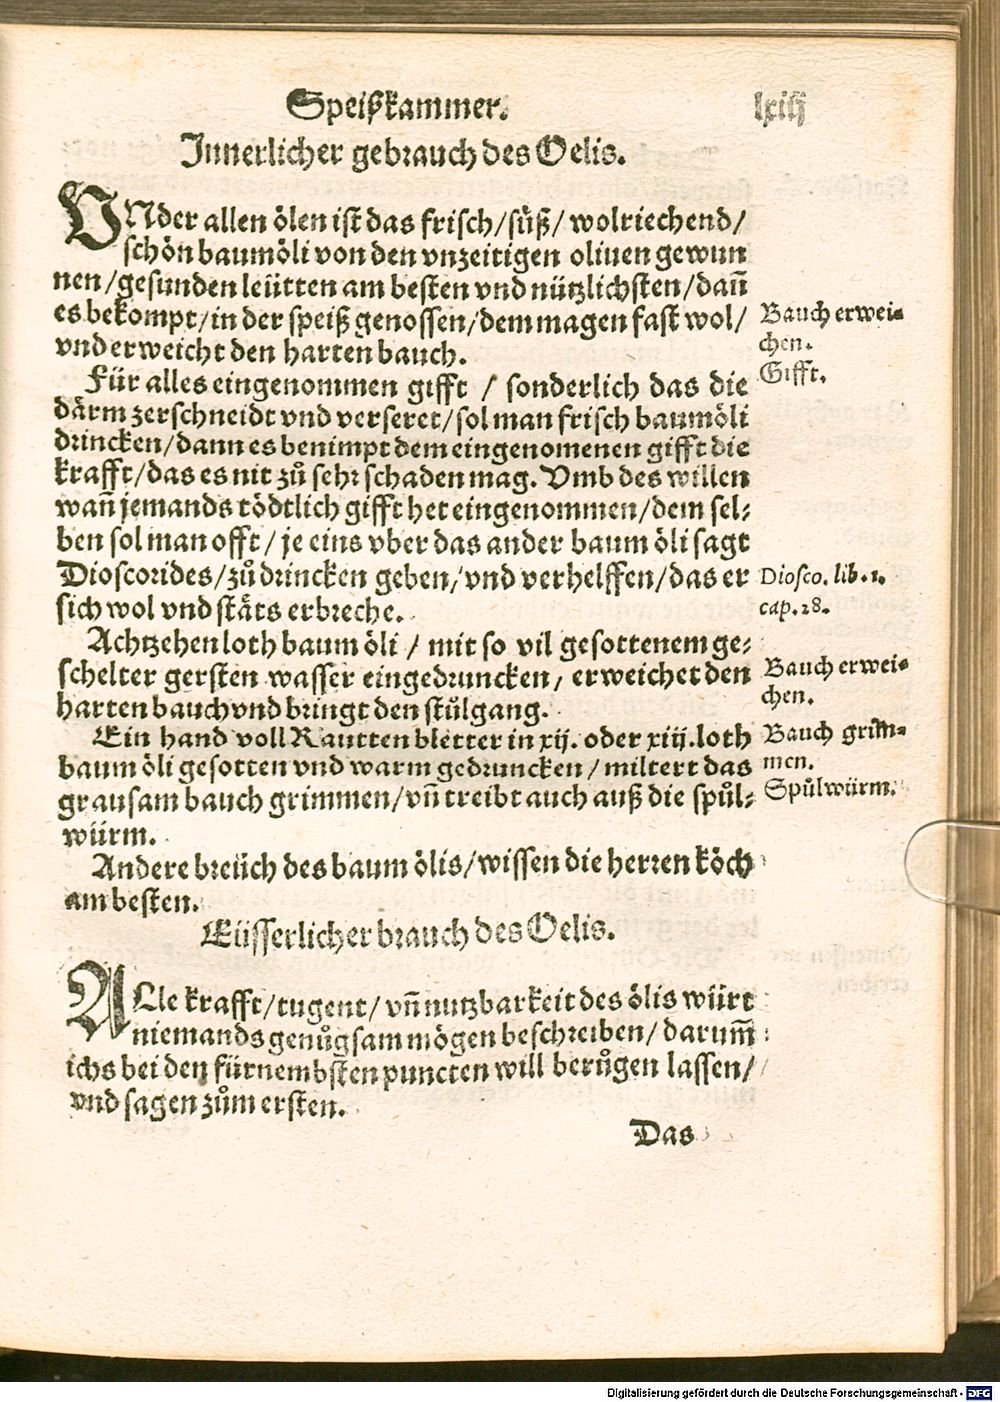 Speißkammer. lxiij
Innerlicher gebrauch des Oelis.
VNder allen ölen ist das frisch/süß/ wolriechend/
schön baumöli von den vnzeitigen oliuen gewun
nen/gesunden leütten am besten vnd nützlichsten/dañ
es bekompt/in der speiß genossen/dem magen fast wol/
vnd erweicht den harten bauch.
Bauch erwei-
chen.
Für alles eingenommen gifft / sonderlich das die
Gifft.
därm zerschneidt vnd verseret/sol man frisch baumöli
drincken/dann es benimpt dem eingenomenen gifft die
krafft/das es nit zů sehr schaden mag. Vmb des willen
wañ jemands tödtlich gifft het eingenommen/dem sel-
ben sol man offt/je eins vber das ander baum öli sagt
Dioscorides/zů drincken geben/vnd verhelffen/das er
sich wol vnd stäts erbreche.
Diosco. lib. 1.
cap. 28.
Achtzehen loth baum öli / mit so vil gesottenem ge-
schelter gersten wasser eingedruncken, erweichet den
harten bauch vnd bringt den stůlgang.
Bauch erwei-
chen.
Ein hand voll Rautten bletter in xij. oder xiij. loth
baum öli gesotten vnd warm gedruncken/miltert das
grausam bauch grimmen/vñ treibt auch auß die spůl-
würm.
Bauch grim-
men.
Spůlwürm.
Andere breüch des baum ölis/wissen die herren köch
am besten.
Eüsserlicher brauch des Oelis.
ALle krafft/tugent/vñ nutzbarkeit des ölis würt
niemands genůgsam mögen beschreiben/darum̃
ichs bei den fürnembsten puncten will berůgen lassen/
vnd sagen zům ersten.
Das
Digitalisierung gefördert durch die Deutsche Forschungsgemeinschaft - DFG